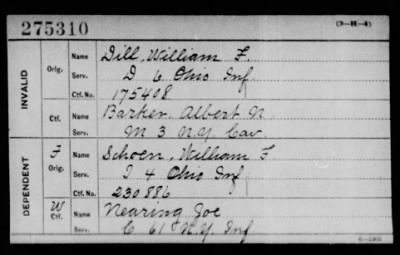 275310 (3—H—4)
INVALID
Orig. Name Dill, William F.
Serv. D 6 Ohio Inf.
Ctf. No. 175408
Ctf. Name Barker, Albert N.
Serv. M 3 N.Y. Cav.
DEPENDENT
F Orig. Name Schoen, William F
Serv. I 4 Ohio Inf
Ctf. No. 230886
W Ctf. Name Nearing Joe
Serv. C 61 N.Y. Inf